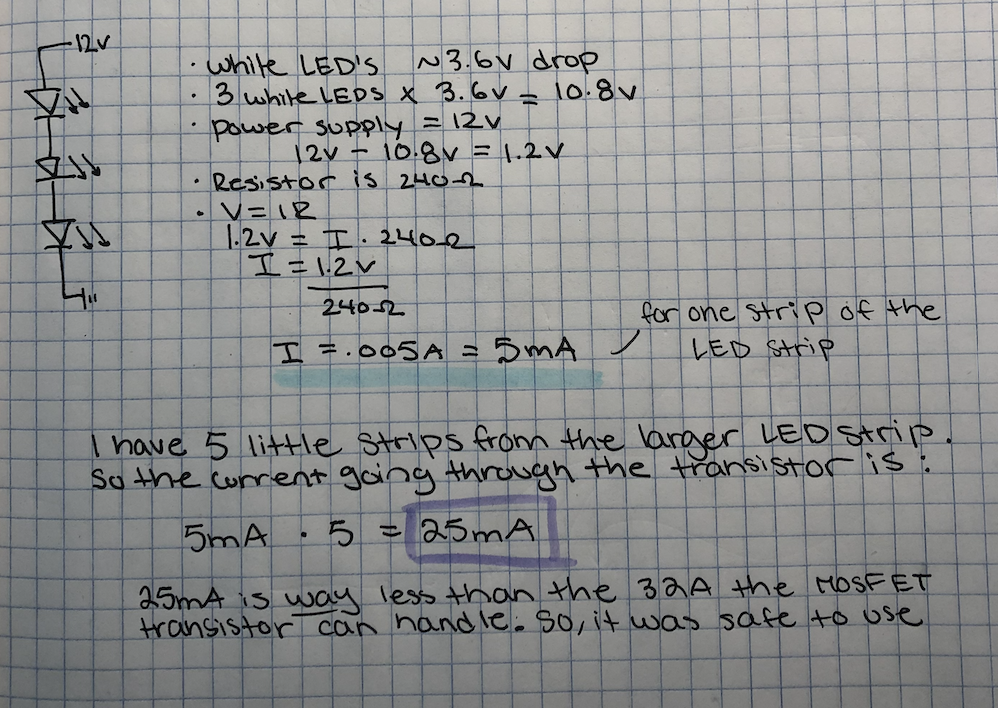 12V
· White LED's ~3.6V drop
· 3 white LEDS x 3.6V = 10.8V
· power supply = 12V
12V - 10.8V = 1.2V
· Resistor is 240Ω
· V = IR
1.2V = I · 240Ω
I = 1.2V
240Ω
I = .005A = 5mA
for one strip of the
LED strip
I have 5 little strips from the larger LED strip.
So the current going through the transistor is:
5mA · 5 = 25mA
25mA is way less than the 32A the MOSFET
transistor can handle. So, it was safe to use